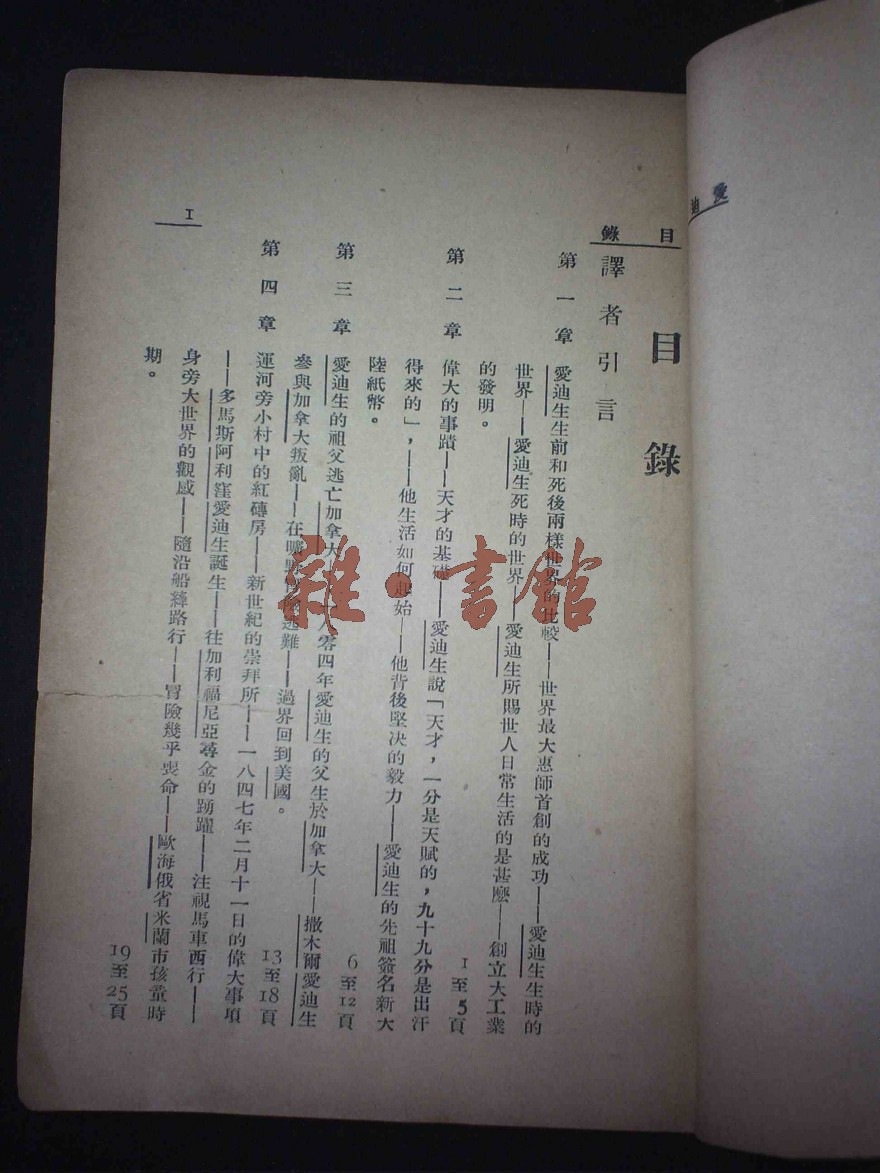 愛迪
目錄
目錄
譯者引言
第一章 愛迪生生前和死後兩樣世界的比較——世界最大惠師首創的成功——愛迪生生時的
世界——愛迪生死時的世界——愛迪生所賜世人日常生活的是甚麼——創立大工業
的發明。
1至5頁
第二章 偉大的事蹟——天才的基礎——愛迪生說「天才，一分是天賦的，九十九分是出汗
得來的」，——他生活如何起始——他背後堅決的毅力——愛迪生的先祖簽名新大
陸紙幣。
6至12頁
第三章 愛迪生的祖父逃亡加拿大——一八零四年愛迪生的父生於加拿大——撒木爾愛迪生
參與加拿大叛亂——在曠野冒險逃難——過界回到美國。
13至18頁
第四章 運河旁小村中的紅磚房——新世紀的崇拜所——一八四七年二月十一日的偉大事項
——多馬斯阿利窪愛迪生誕生——往加利福尼亞尋金的踴躍——注視馬車西行——
身旁大世界的觀感——隨沿船縴路行——冒險幾乎喪命——歐海俄省米蘭市孩童時
期。
19至25頁
I
雜·書館